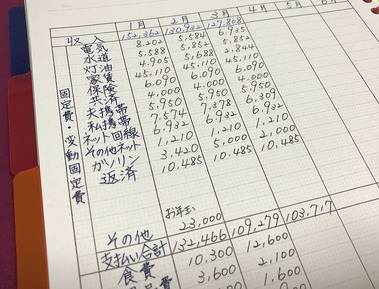 1月 2月 3月 4月 5月 6月
収入 152,362 130,932 127,808
固定費・変動固定費
電気 8,202 5,584 6,935
水道 5,588 5,852 5,852
灯油 4,905 5,688 2,844
家賃 45,110 45,110 45,110
保険 6,090 6,090 6,090
共済 4,000 4,000 4,000
夫携帯 5,950 5,950 5,950
私携帯 7,574 7,378 6,309
ネット回線 6,932 6,932 6,932
その他ネット 1,210 1,210 1,210
ガソリン 3,420 5,000 2,000
返済 10,485 10,485 10,485
お年玉
その他 23,000
支払い合計 132,466 109,279 103,717
食費 10,300 12,600
3,600 2,100
1,600